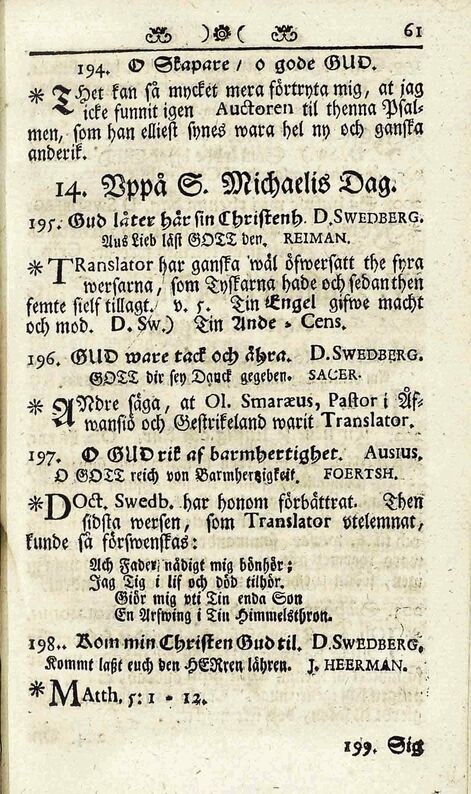 )❁( 61
194. O Skapare / o gode GUD.
* THet kan så mycket mera förtryta mig, at jag
icke funnit igen Auctoren til thenna Psal-
men, som han elliest synes wara hel ny och ganska
anderik.
14. Vppå S. Michaelis Dag.
195. Gud låter här sin Christenh. D. SWEDBERG.
Aus Lieb läst GOTT den. REIMAN.
* TRanslator har ganska wäl öfwersatt the fyra
wersarna, som Tyskarna hade och sedan then
femte sielf tillagt. v. 5. Tin Engel gifwe macht
och mod. D. Sw.) Tin Ande - Cens.
196. GUD ware tack och ähra. D. SWEDBERG.
GOTT dir sey Danck gegeben. SACER.
* ANdre säga, at Ol. Smaræus, Pastor i Åf-
wansiö och Gestrikeland warit Translator.
197. O GUD rik af barmhertighet. AUSIUS.
O GOTT reich von Barmhertzigkeit. FOERTSH.
* DOct. Swedb. har honom förbättrat. Then
sidsta wersen, som Translator vtelemnat,
kunde så förswenskas:
Ach Fader nådigt mig bönhör;
Jag Tig i lif och död tilhör.
Giör mig vti Tin enda Son
En Arfwing i Tin Himmelsthron.
198. Kom min Christen Gud til. D. SWEDBERG.
Kommt laßt euch den HERren lähren. J. HEERMAN.
* MAtth. 5: 1 - 12.
199. Sig